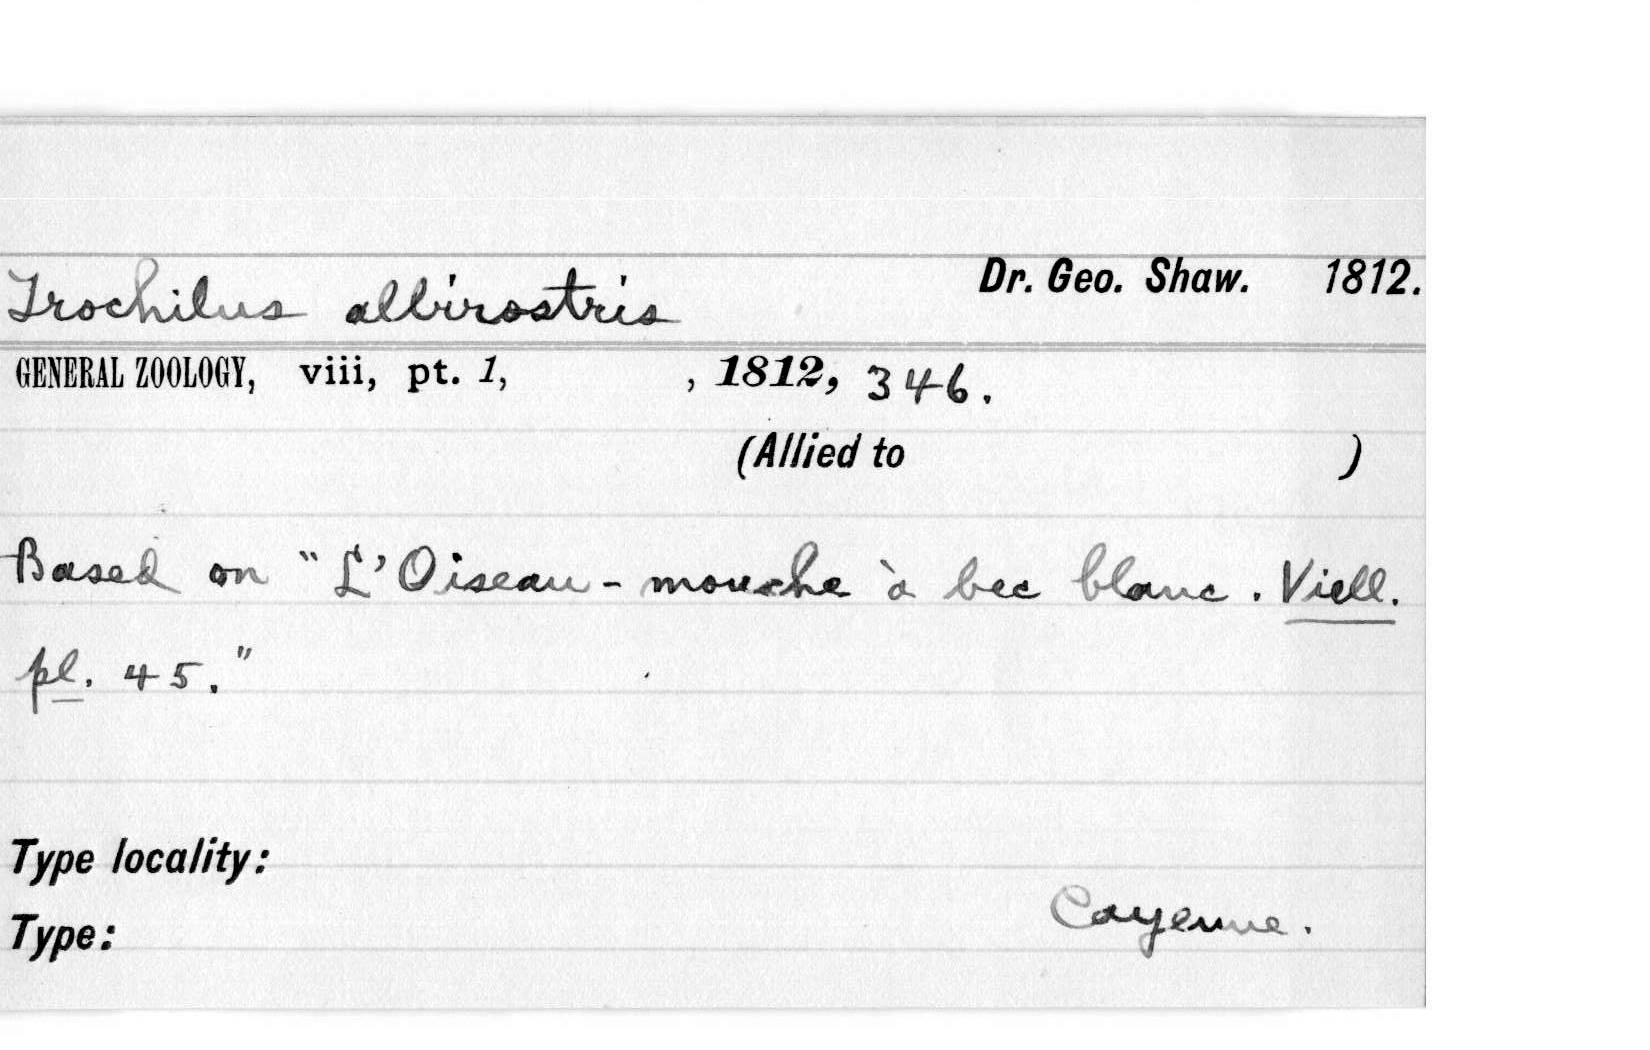 Trochilus albirostris Dr. Geo. Shaw. 1812.
GENERAL ZOOLOGY, viii, pt. 1, , 1812, 346.
(Allied to )
Based on "L'Oiseau-mouche à bec blanc. Viell.
pl. 45."
Type locality:
Cayenne.
Type: